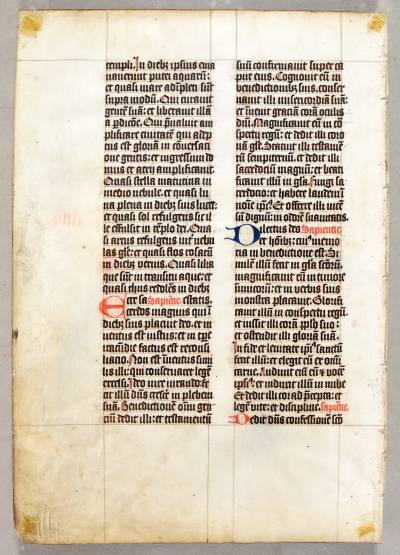 templi. In diebꝫ ipsius ema
nauerunt putei aquarū:
et quasi mare adīpleti sūt
supra modū. Qui curauit
gentē suā: et liberauit illā
a pdicōne. Qui pualuit am
plificare ciuitatē qui adep
tus est gloriā in cōuersaci
one gentis: et ingressum do
mus et atrij amplificauit.
Quasi stella matutina in
medio nebule et quasi lu
na plena in diebꝫ suis lucet:
et quasi sol refulgens sic il
le effulsit in tēplo dei. Qua
si arcus refulgens int̄ nebu
las gl̄e: et quasi flos rosarū
in diebꝫ vernis. Quasi lilia
que sūt in transitu aque: et
quasi thus redolēs in diebꝫ
Ecce sa Sapiēcie. estatis.
cerdos magnus qui ī
diebꝫ suis placuit deo. et in
uentus est iustus: et in tꝑe
iracūdie factus est reconsi
liacio. Non est inuētus simi
lis illi: qui conseruaret legē
excelsi. Ideo iure iurādo fe
cit illū dn̄s crescē in plebem
suā. Benedictionē oīm gen
ciū dedit illi: et testamentū
suū confirmauit super ca
put eius. Cognouit eū in
benedictionibꝫ suis. conser
uauit illi misericordiā suā:
et inuenit graciā corā oculis
dn̄i. Magnificauit eū in cō
spectu regū: et dedit illi coro
nā gl̄e. Statuit illi testamētū
sempiternū. et dedit illi
sacerdociū magnū: et beati
ficauit illū in gl̄a. Fungi sa
cerdocio: et habere laudem ī
noīe ipīꝰ. Et offerre illi incē
sū dignū: in odorē suauitatis.
Dilectus deo Sapiencie.
et hoībꝫ: cuiꝰ memo
ria in benedictione est. Si
milē illū fecit in gl̄a sc̄orū:
magnificauit eū in timore
inimicorū: et in verbis suis
monstra placauit. Glorifi
cauit illū in conspectu regū:
et iussit illi corā pp̄lo suo:
et ostendit illi gloriā suā.
In fide et lenitate ipīꝰ sanctū
fecit illū: et elegit eū ex omi
carne. Audiuit eni eū ꝫ voce
ipīꝰ: et induxit illū in nube
Et dedit illi cor ad p̄cepta: et
legē vite: et discipline. Sapiēcie.
Dedit dn̄s confessionē sc̄o